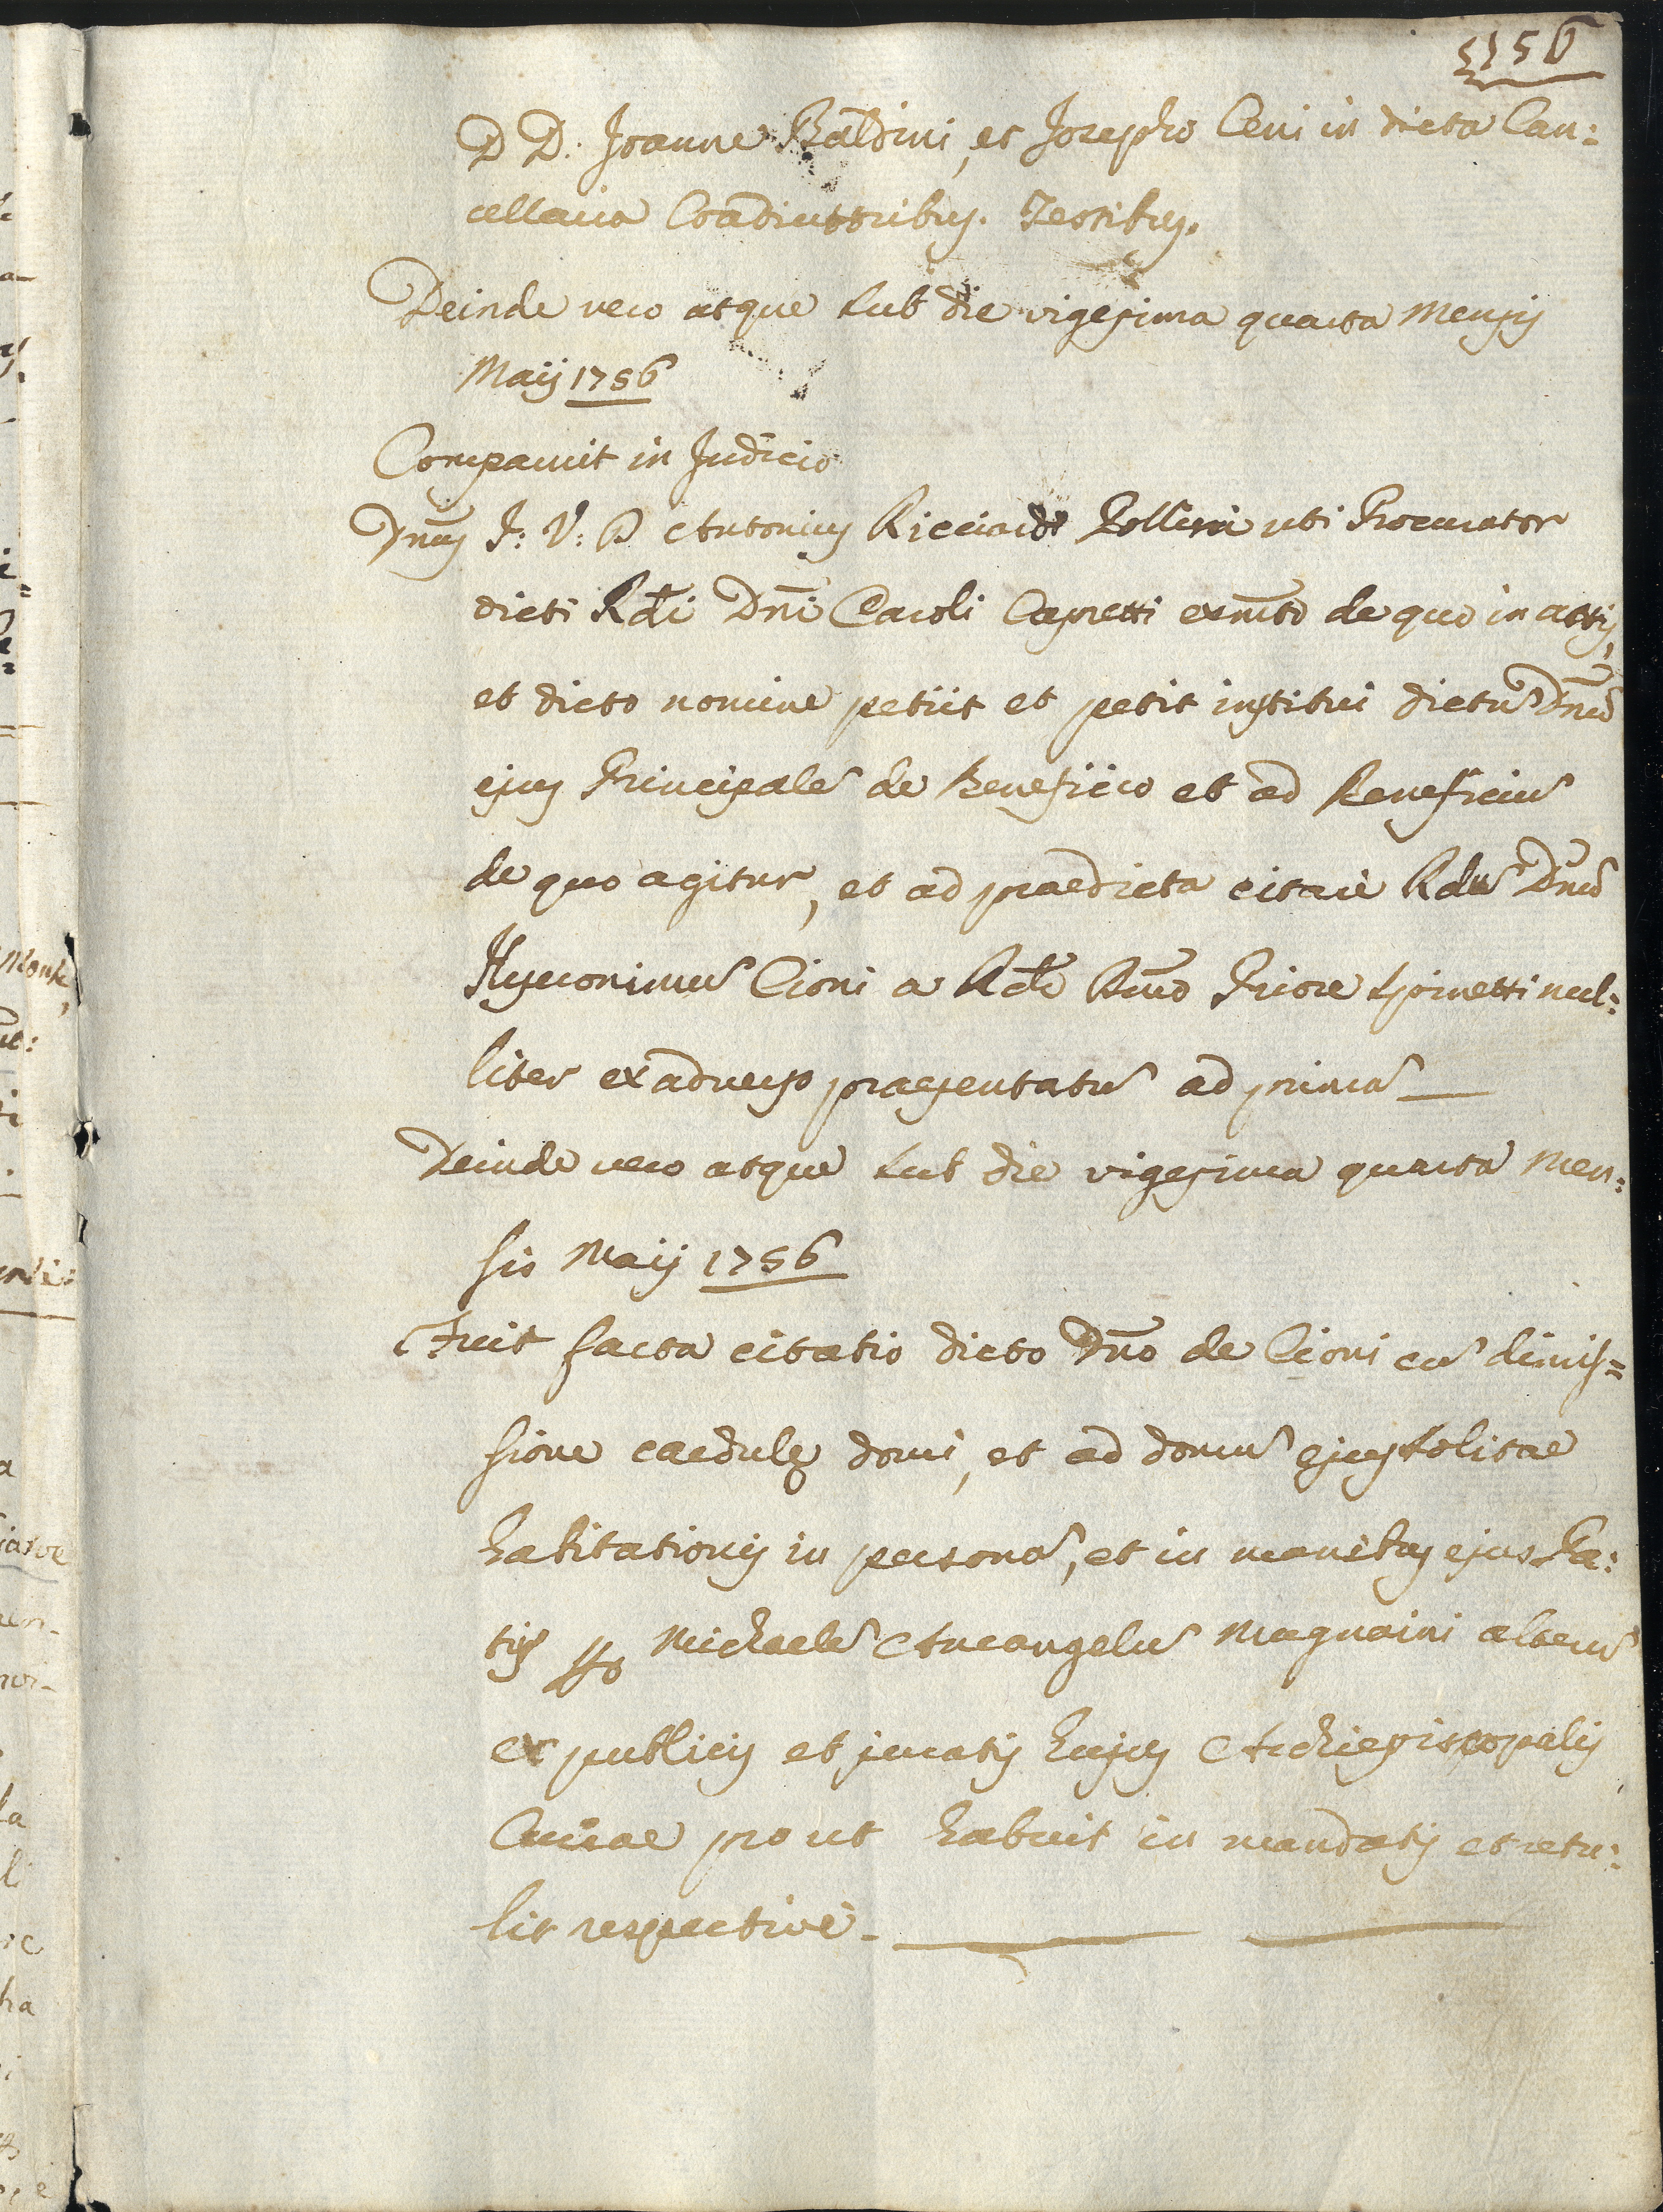 156
D D. Joanne Baldini, et Josepho Ceni in dicta Can:
cellaria Coadiuttoribus. Testibus.
Deinde vero atque sub die vigesima quarta Mensis
Maij 1756
Comparuit in Judicio
Dnus J: V: D Antonius Ricciardi Pollini uti Procurator
dicti Rdi Dni Caroli Capretti ex mto de quo in attis,
et dicto nomine petiit et petit institui dictũ Dnũ
ejus Principalẽ de Beneficio et ad Beneficiũ
de quo agitur, et ad praedicta citari Rdũ Dnũ
Hyeronimũ Cioni a Rdo Dno Priore Spinetti nul:
liter ex adverso praesentatũ ad primã
Deinde vero atque sub die vigesima quarta Men:
sis Maij 1756
Fuit facta citatio dicto Dno de Cioni cũ dimis=
sione caedulę domi, et ad domũ ejus solitae
habitationis in personã, et in manibus ejus Fra:
tris Michaelẽ Arcangelũ Magnaini alterũ
ex publicis et juratis hujus Archiepiscopalis
Curiae prout habuit in mandatis et retu:
lit respective.